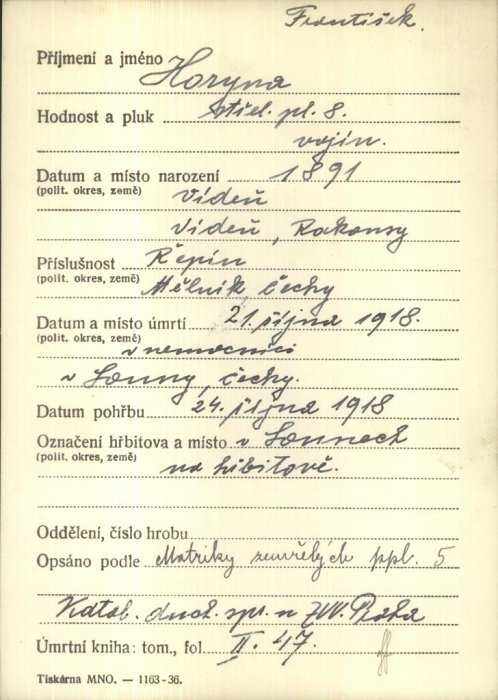 František.
Příjmení a jméno Horyna
Hodnost a pluk střel. pl. 8.
vojín.
Datum a místo narození 1891
(polit. okres, země) Vídeň
Vídeň, Rakousy
Příslušnost Řepín
(polit. okres, země) Mělník, Čechy
Datum a místo úmrtí 21. října 1918.
(polit. okres, země) v nemocnici
v Louny, Čechy.
Datum pohřbu 24. října 1918
Označení hřbitova a místo v Lounech
(polit. okres, země) na hřbitově.
Oddělení, číslo hrobu
Opsáno podle Matriky zemřelých ppl. 5
Katol. duch. spr. u ZVV. Praha
Úmrtní kniha: tom., fol. II. 47.
Tiskárna MNO. — 1163-36.